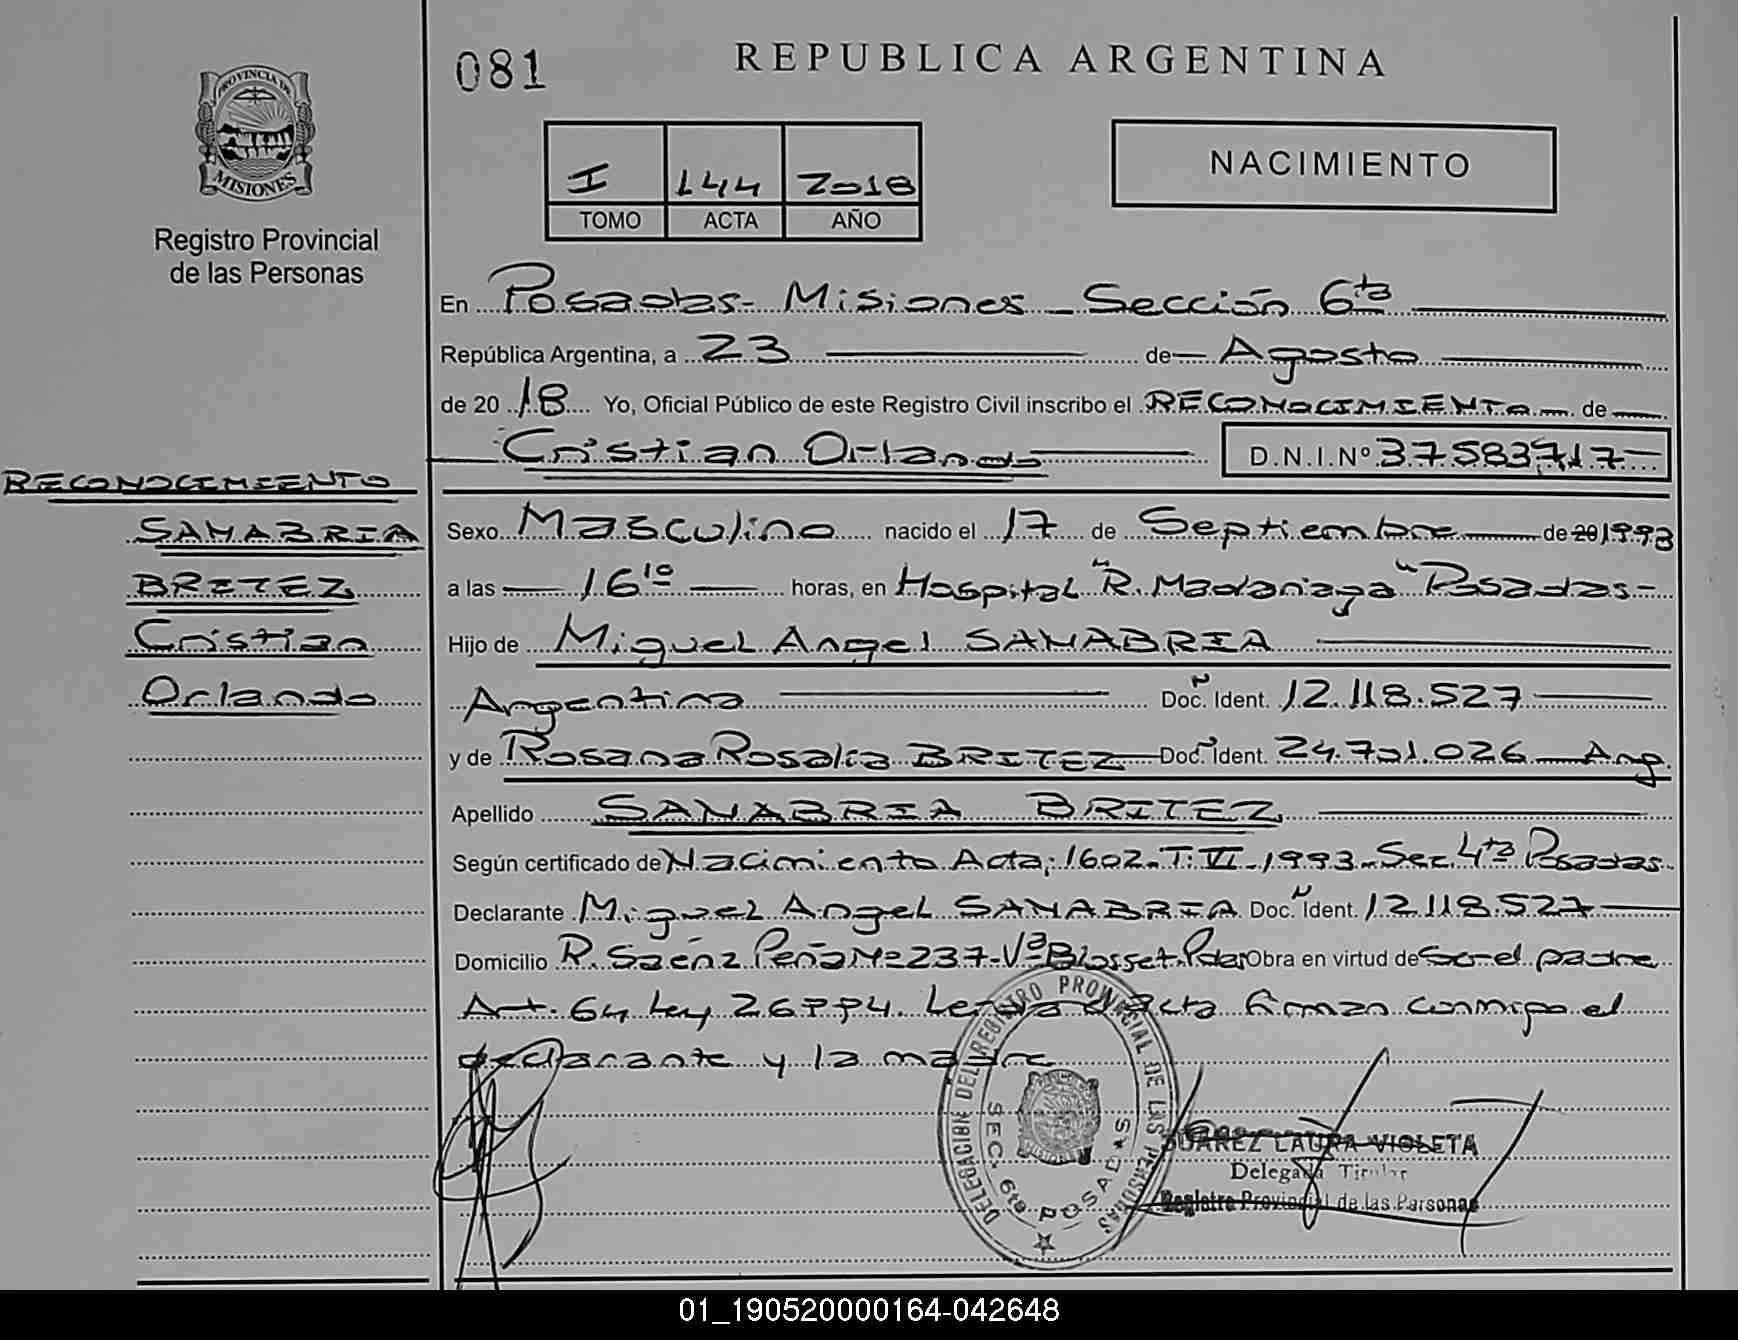 081
REPUBLICA ARGENTINA
PROVINCIA DE
MISIONES
Registro Provincial
de las Personas
I 144 2018
TOMO ACTA AÑO
NACIMIENTO
En Posadas - Misiones - Sección 6ta
República Argentina, a 23 de Agosto
de 2018 Yo, Oficial Público de este Registro Civil inscribo el RECONOCIMIENTO de
Cristian Orlando D.N.I.Nº 37583717
RECONOCIMIENTO
SANABRIA
BRITEZ
Cristian
Orlando
Sexo Masculino nacido el 17 de Septiembre de 20 1993
a las 16 10 horas, en Hospital "R. Madariaga" Posadas-
Hijo de Miguel Angel SANABRIA
Argentina Doc. Ident. 12.118.527
y de Rosana Rosalia BRITEZ Doc. Ident. 24.701.026 Arg.
Apellido SANABRIA BRITEZ
Según certificado de Nacimiento Acta; 1602-T: VI-1993-Sec. 4ta Posadas
Declarante Miguel Angel SANABRIA Doc. Ident. 12.118.527
Domicilio R. Saénz Peña Nº 237-Vª Blosset-Pdas Obra en virtud de ser el padre
Art. 64 Ley 26994. Leída el Acta firman conmigo el
declarante y la madre
DELEGACION DEL REGISTRO PROVINCIAL DE LAS PERSONAS
SEC. 6ta POSADAS
MISIONES
SUAREZ LAURA VIOLETA
Delegada Titular
Registro Provincial de las Personas
01_190520000164-042648